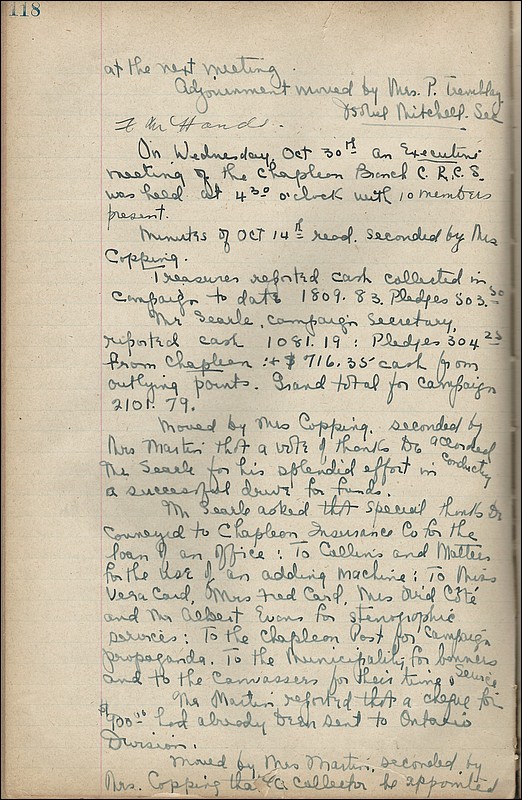 118
at the next meeting.
Adjournment moved by Mrs. P. Tremblay
Mitchell. Sec
On Wednesday, Oct 30th an Executive
meeting of the Chapleau Branch C.R.C.S.
was held at 4 30 o'clock with 10 members
present.
Minutes of Oct 14th read. seconded by Mrs
Copping.
Treasurer reported cash collected in
campaign to date 1809.83. Pledges 303.50
Mr Searle, campaign Secretary,
reported cash 1081.19: Pledges 304 25
from Chapleau :+ $716.35 cash from
outlying points. Grand total for campaign
2101.79.
Moved by Mrs Copping. seconded by
Mrs Martin that a vote of thanks be accorded
Mr Searle for his splendid effort in conducting
a successful drive for funds.
Mr Searle asked that special thanks be
conveyed to Chapleau Insurance Co for the
loan of an office: To Collins and Mattees
for the use of an adding machine: To Miss
Vera Card, Mrs Fred Card, Mrs Côté
and Mr Albert Evans for stenographic
services: To the Chapleau Post for campaign
propaganda. To the Municipality for banners
and to the canvassers for their time & service
Mr Martin reported that a cheque for
$700 00 had already been sent to Ontario
Division.
Moved by Mrs Martin, seconded by
Mrs. Copping that a collector be appointed